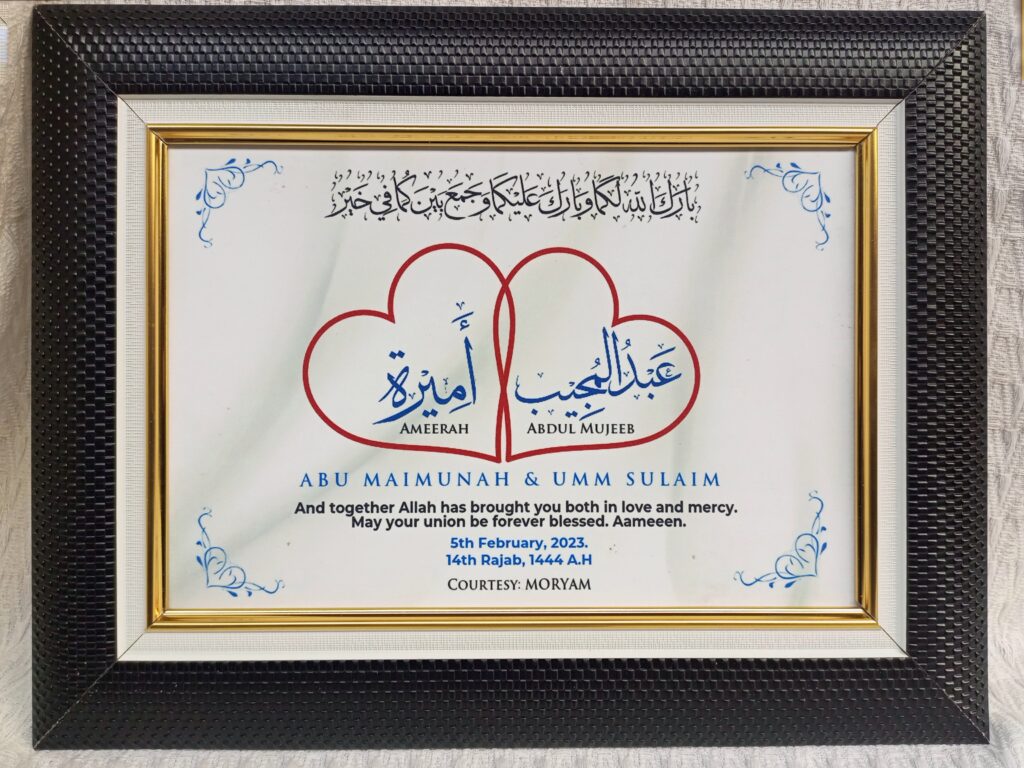 بَارَكَ اللهُ لَكُمَا وَبَارَكَ عَلَيْكُمَا وَجَمَعَ بَيْنَ كُمَا فِي خَيْرٍ
أَمِيْرَة
عَبْدُ المُجِيْب
AMEERAH
ABDUL MUJEEB
ABU MAIMUNAH & UMM SULAIM
And together Allah has brought you both in love and mercy.
May your union be forever blessed. Aameeen.
5th February, 2023.
14th Rajab, 1444 A.H
COURTESY: MORYAM